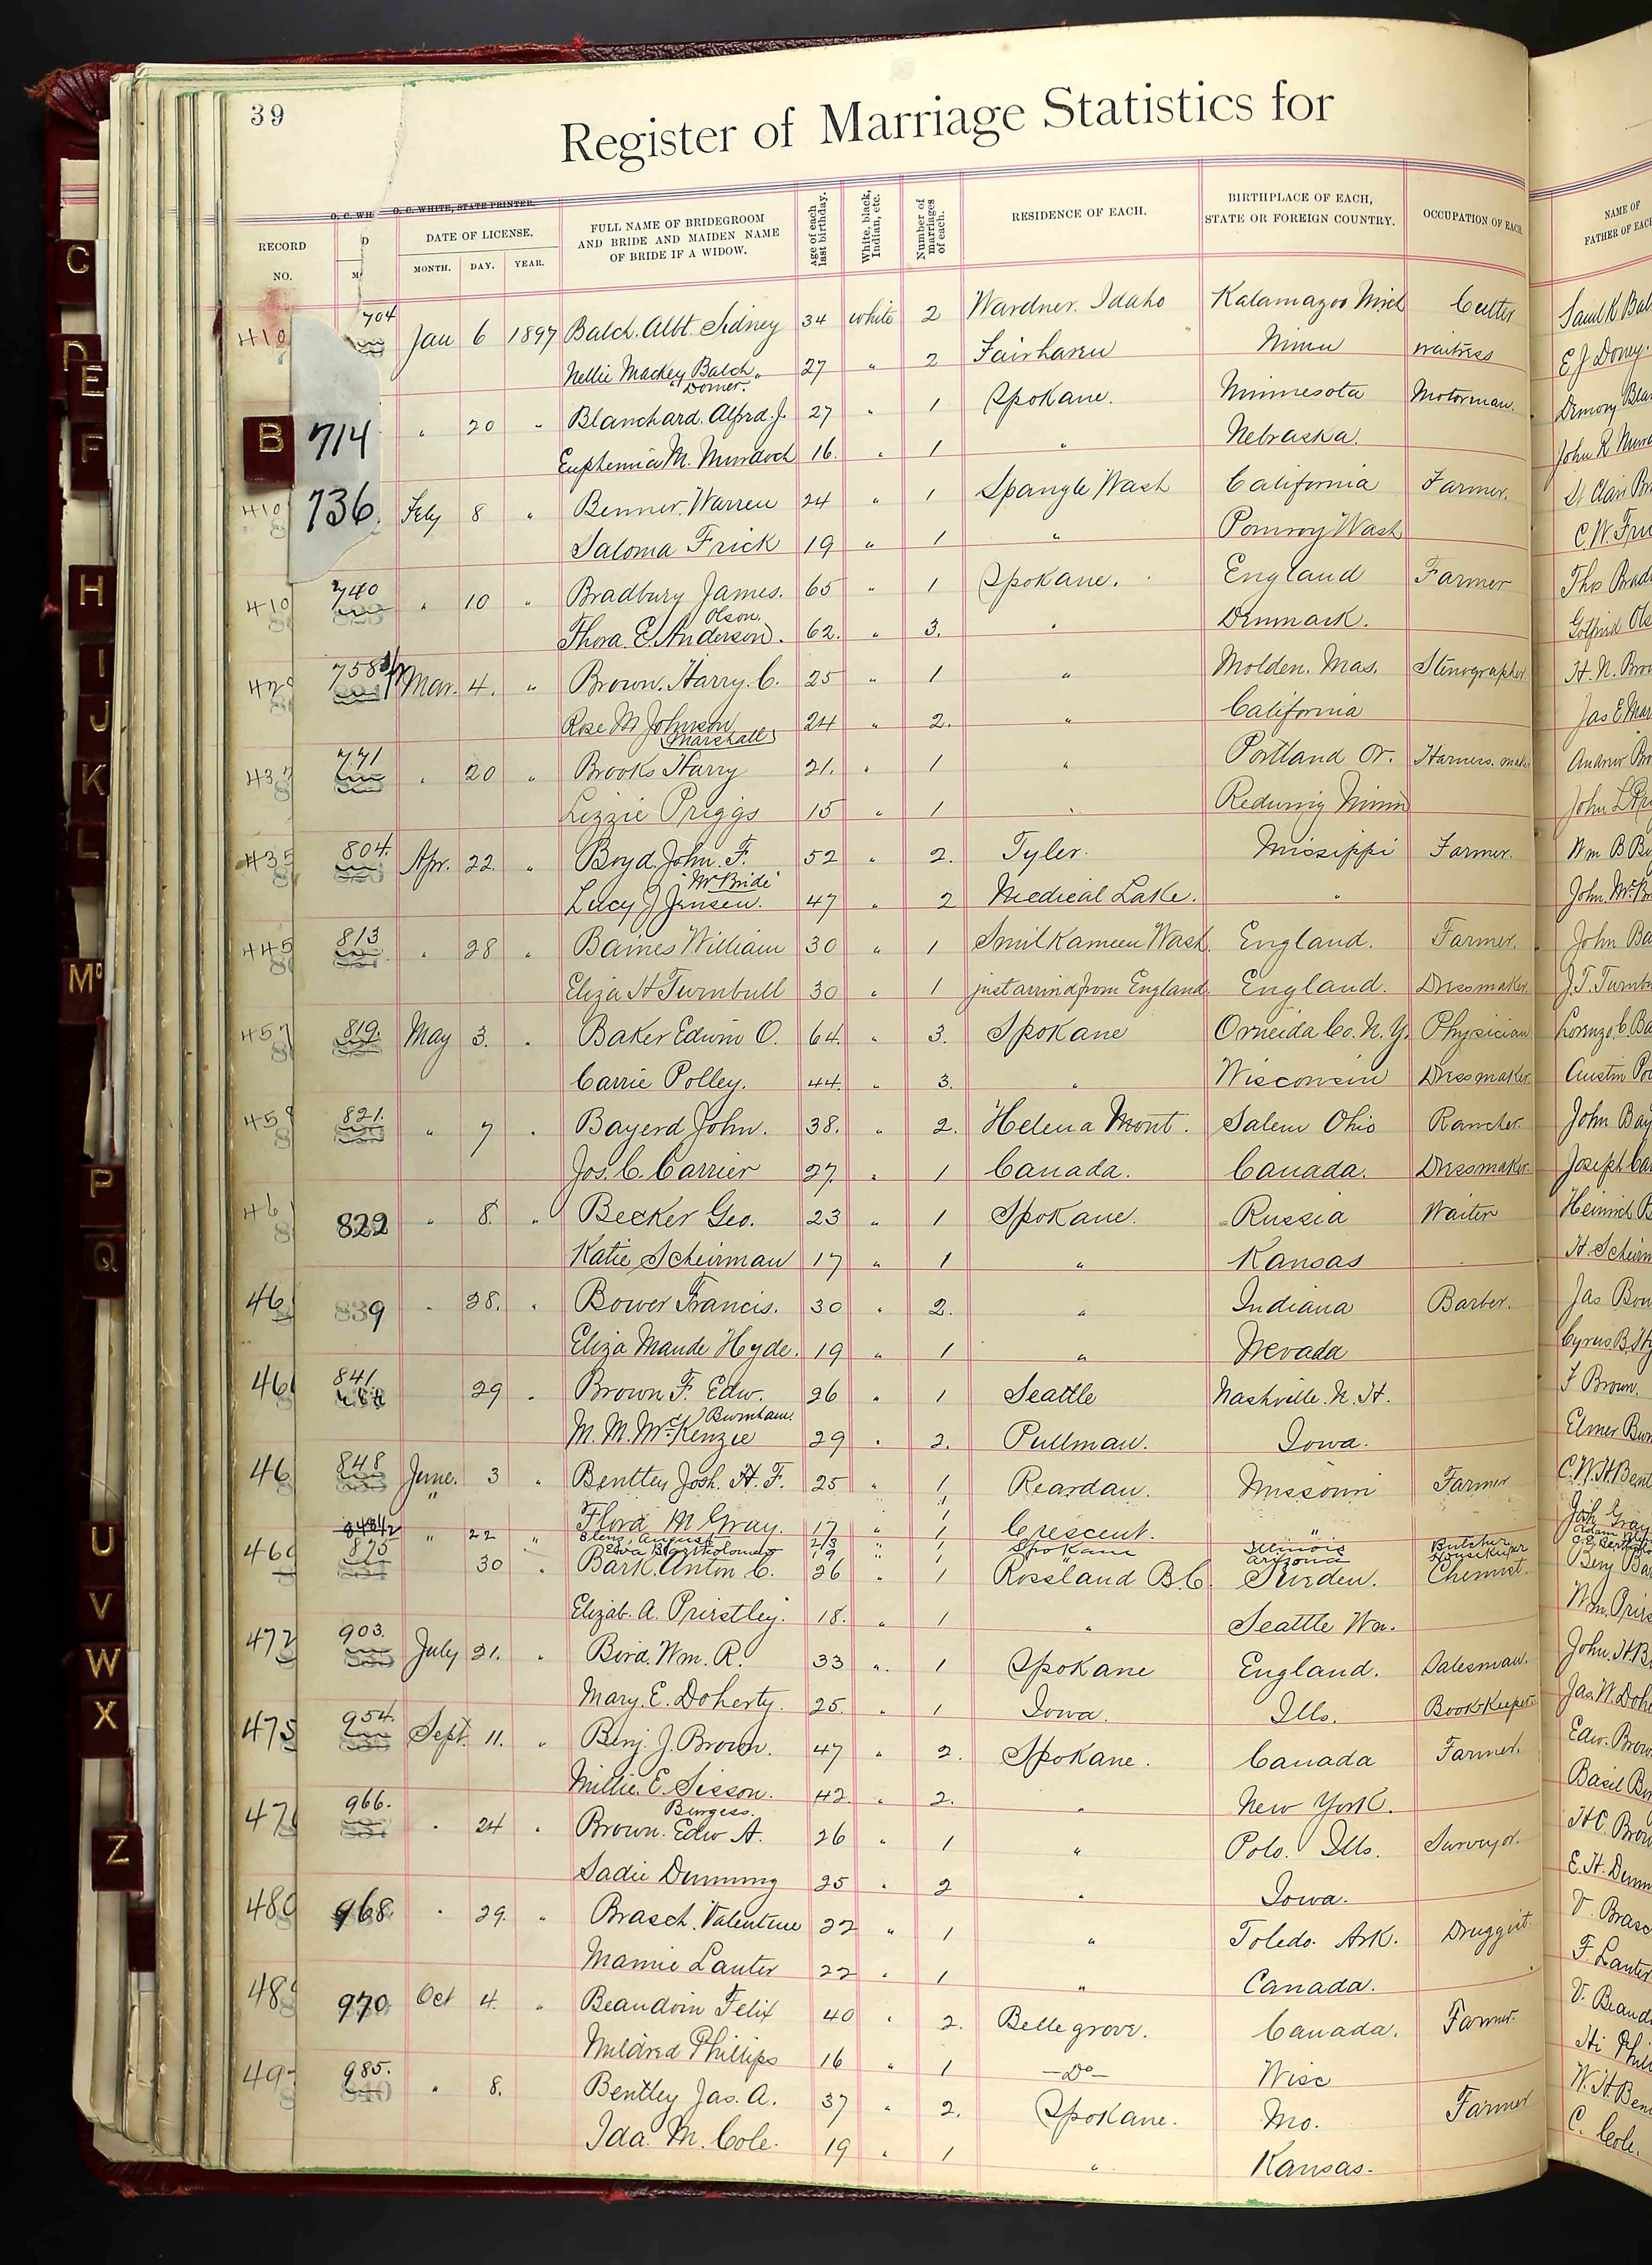 39
Register of Marriage Statistics for
O. C. WH O. C. WHITE, STATE PRINTER.
RECORD NO. D M DATE OF LICENSE. MONTH. DAY. YEAR. FULL NAME OF BRIDEGROOM AND BRIDE AND MAIDEN NAME OF BRIDE IF A WIDOW. Age of each last birthday. White, black, Indian, etc. Number of marriages of each. RESIDENCE OF EACH. BIRTHPLACE OF EACH, STATE OR FOREIGN COUNTRY. OCCUPATION OF EACH. NAME OF FATHER OF EACH
410 704 Jan 6 1897 Balch. Albt. Sidney 34 white 2 Wardner. Idaho Kalamazoo Mich Cutter Saml K Bal
Nellie Mackey Balch 27 " 2 Fairhaven Minn waitress E J Doney.
"Doner."
714 " 20 " Blanchard. Alfrd. J. 27 " 1 Spokane. Minnesota Motorman. Demory Blan
Euphemia M. Murdoch 16. " 1 " Nebraska. John R Murd
410 736. Feby 8 " Benner. Warren 24 " 1 Spangle Wash California Farmer. St Clair Be
Saloma Frick 19 " 1 " Pomroy Wash C. W. Fri
410 740 " 10 " Bradbury James. 65 " 1 Spokane. England Farmer Thos Bradb
Olson.
Thora. E. Anderson. 62. " 3. " Denmark. Gotfried Ols
42 758 1/2 Mar. 4. " Brown. Harry. C. 25 " 1 " Molden. Mas. Stenographer H. N. Brow
Rose M Johnson 24 " 2. " California Jas E Mar
(Marshall)
43 771 " 20 " Brooks Harry 21. " 1 " Portland Or. Harness. maker Andrew Bro
Lizzie Priggs 15 " 1 " Redwing Minn John L Pri
435 804. Apr. 22. " Boyd. John. F. 52 " 2. Tyler. Missippi Farmer. Wm B Bo
"McBride"
Lucy J Jensen. 47 " 2 Medical Lake. " John. McB
445 813 " 28 " Baines William 30 " 1 Smilkameen Wash. England. Farmer. John Ba
Eliza H Turnbull 30 " 1 just arrived from England. England. Dressmaker. J. T. Turnb
457 819. May 3. " Baker Edwin O. 64. " 3. Spokane Orneida Co. N. Y. Physician Lorenzo C. Ba
Carrie Polley. 44. " 3. " Wisconsin Dressmaker Austin Po
45 821. " 7 " Bayerd John. 38. " 2. Helena Mont. Salem Ohio Rancher. John Bay
Jos. C. Carrier 27. " 1 Canada. Canada. Dressmaker Joseph Ca
46 822 " 8. " Becker Geo. 23 " 1 Spokane. Russia Waiter Heinrich B
Katie Scheirman 17 " 1 " Kansas H. Scheirm
46 839 " 28. " Bower Francis. 30 " 2. " Indiana Barber. Jas Bow
Eliza Maude Hyde. 19 " 1 " Nevada Cyrus B. Hy
46 841. 29 " Brown F. Edw. 26 " 1 Seattle Nashville. N. H. F Brown.
Burnham.
M. M. McKenzie 29 " 2. Pullman. Iowa. Elmer Bur
46 848 June. 3 " Bentley Josh. H. F. 25 " 1 Reardan. Missouri Farmer C. W. H. Bent
Flora M Gray. 17 " 1 Crescent. " Josh Gray
848 1/2 " 22 " Blenz, August 23 " 1 Spokane Illinois Butcher Adam Bl
Eva Bartholomew 19 " 1 " Arizona Housekeeper C. E. Barth
46 875 30 " Bark. Anton C. 26 " 1 Rossland B.C. Sweden. Chemist. Benj Ba
Elizab. A. Priestley. 18. " 1 " Seattle Wn. Wm. Pries
472 903. July 21. " Bird. Wm. R. 33 " 1 Spokane England. Salesman. John. H. B
Mary. E. Doherty. 25. " 1 Iowa. Ills. Book-Keeper Jas. W. Dohe
475 954. Sept. 11. " Benj. J. Brown. 47 " 2. Spokane. Canada Farmer. Edw. Brow
Millie. E. Sisson. 42. " 2. " New York. Basil Bu
Burgess.
47 966. " 24 " Brown. Edw A. 26 " 1 " Polo. Ills. Surveyor. H. C. Brow
Sadie Dunning 25 " 2 " Iowa. E. H. Dunn
480 968. " 29. " Brasch. Valentine 22 " 1 " Toledo. Ark. Druggist. V. Brasc
Mamie Lauter 22 " 1 " Canada. F. Lauter
48 970 Oct 4. " Beaudoin Felix 40 " 2. Belle grove. Canada. Farmer. V. Beaud
Mildred Phillips 16 " 1 —Do— Wisc Hi Phill
49 985. " 8. Bentley Jas. A. 37 " 2. Spokane. Mo. Farmer W. H. Ben
Ida. M. Cole. 19 " 1 " Kansas. C. Cole.
C
D
E
B
F
H
I
J
K
L
Mc
P
Q
U
V
W
X
Z